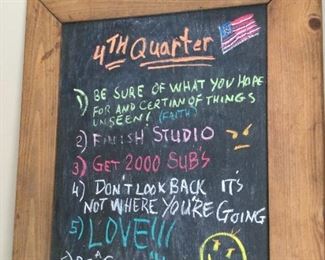 4TH QUARTER
1) BE SURE OF WHAT YOU HOPE
FOR AND CERTIAN OF THINGS
UNSEEN! (FAITH)
2) FINISH STUDIO
3) GET 2000 SUB'S
4) DON'T LOOK BACK IT'S
NOT WHERE YOU'RE GOING
5) LOVE!!!